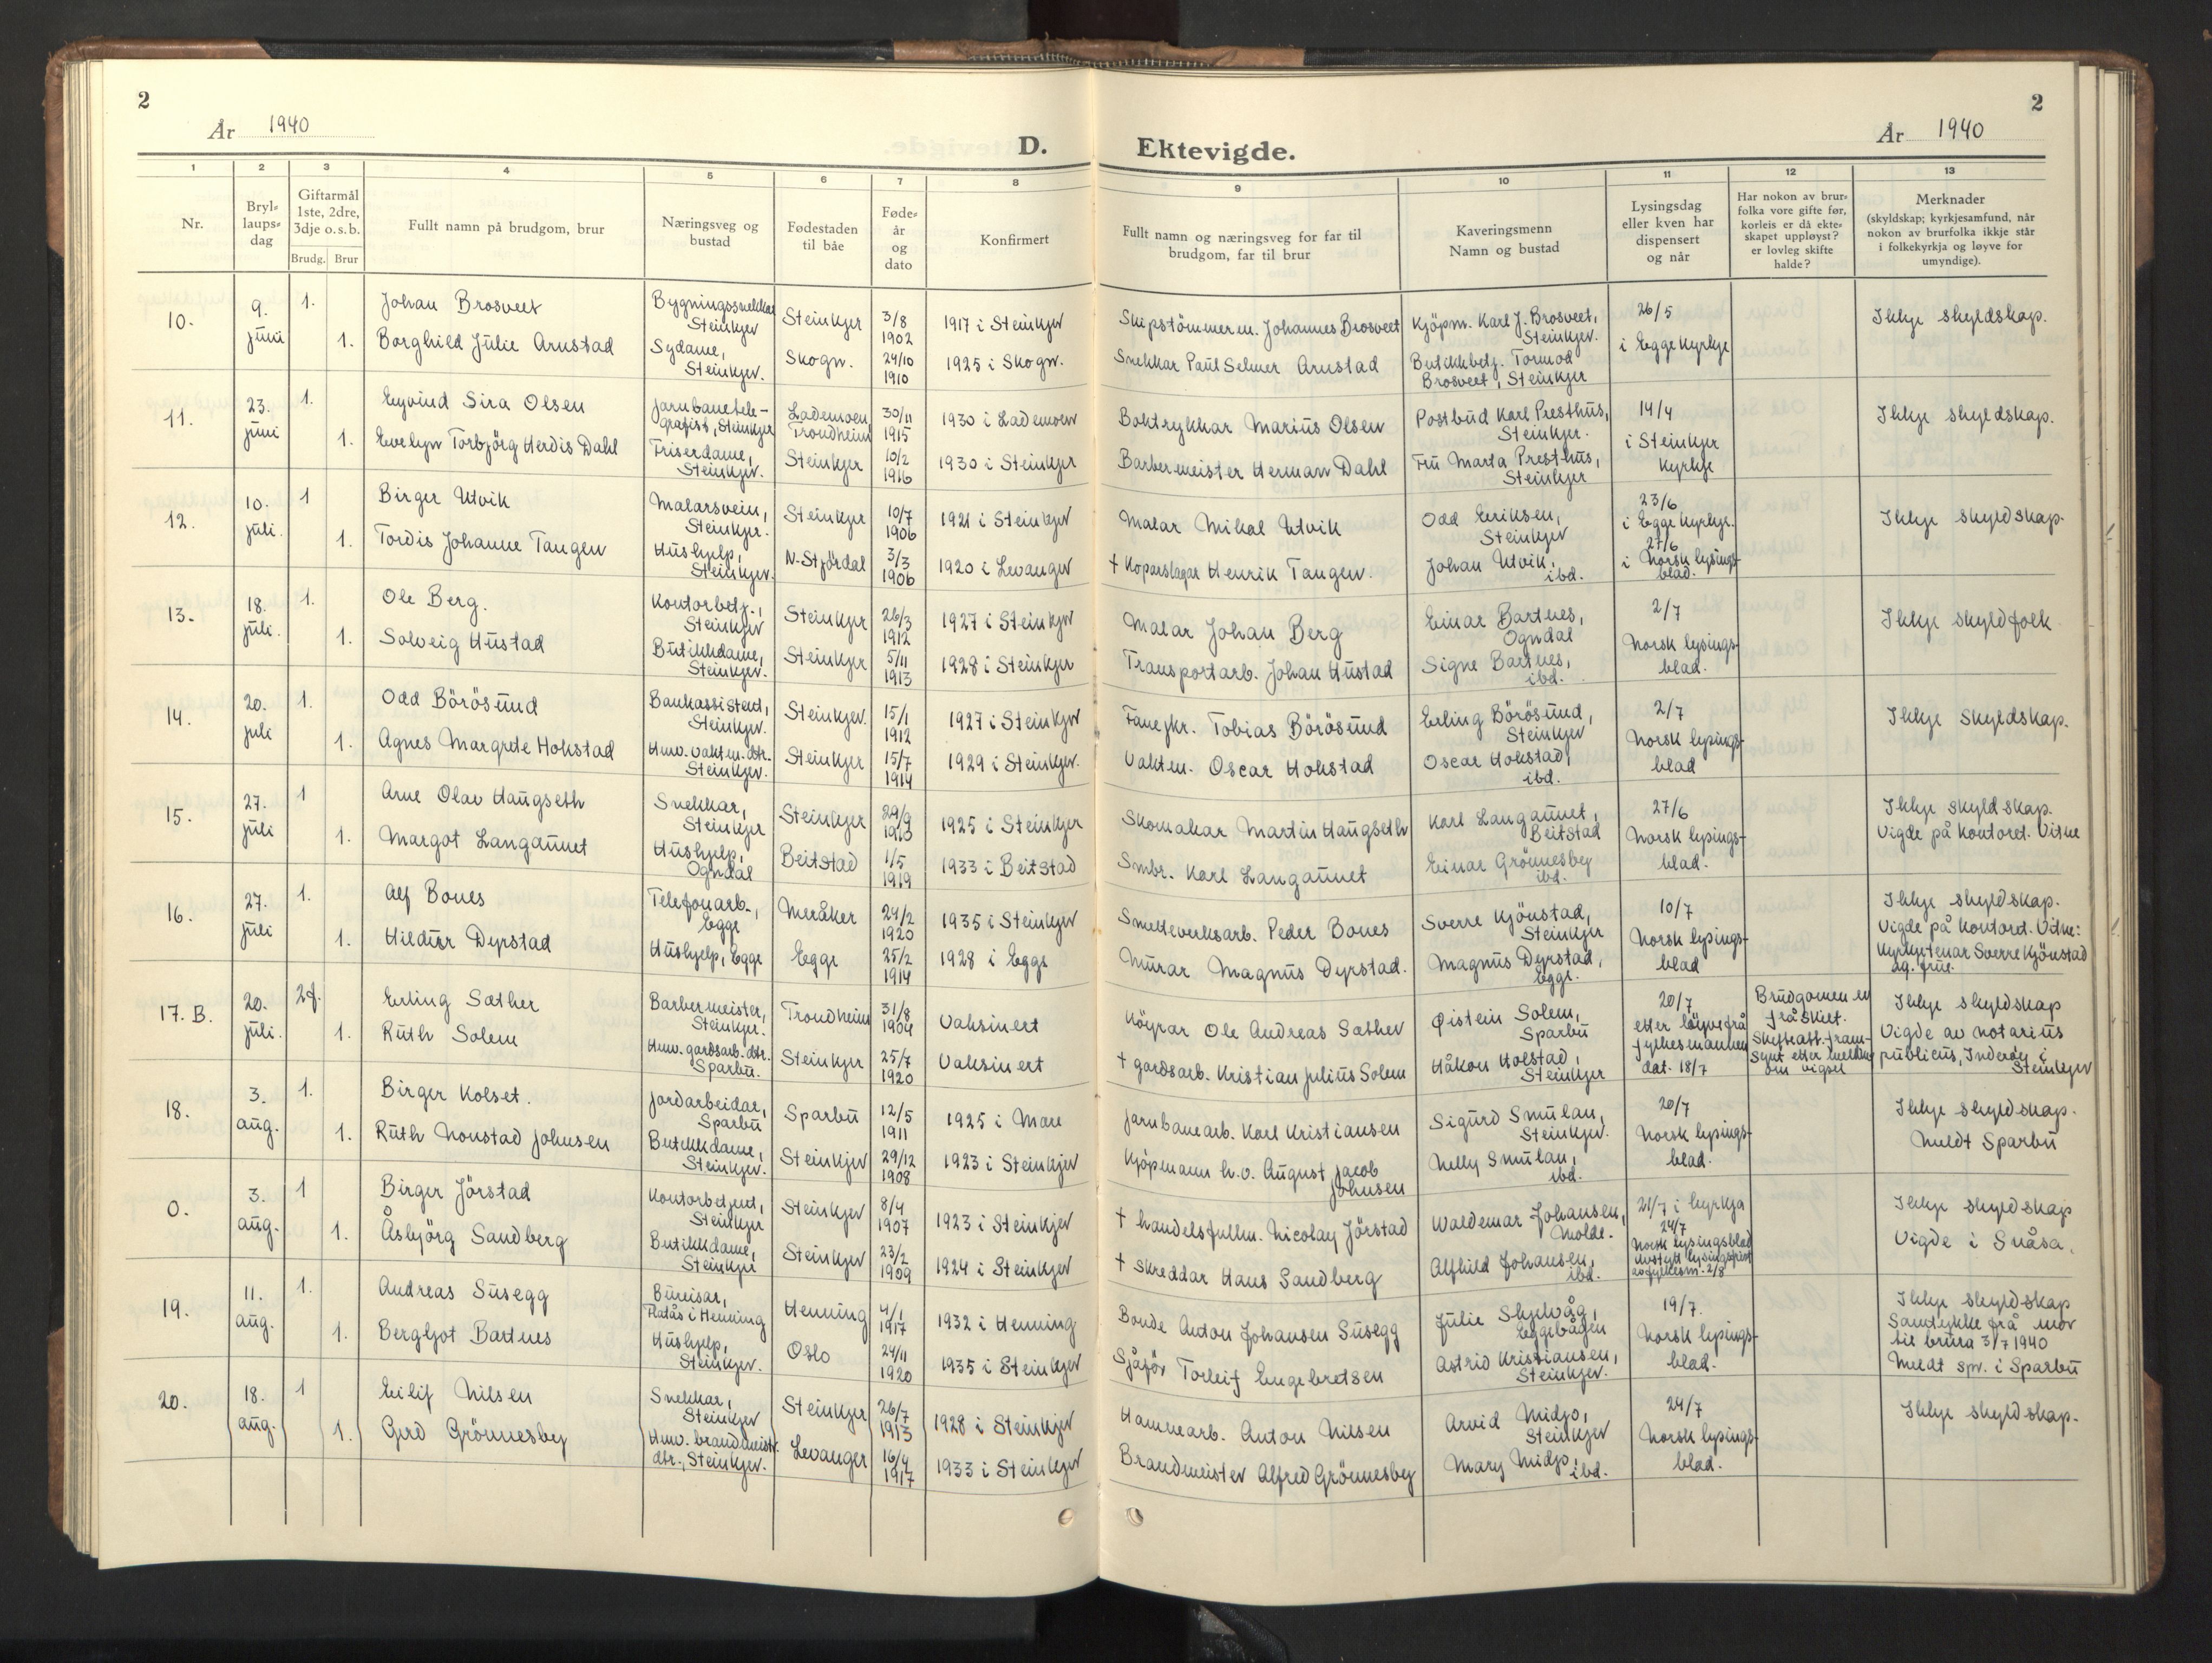 2
År 1940
D.
1 2 3 4 5 6 7 8
Nr.
Bryl-
laups-
dag
Giftarmål
1ste, 2dre,
3dje o.s.b.
Brudg. Brur
Fullt namn på brudgom, brur
Næringsveg og
bustad
Fødestaden
til båe
Føde-
år
og
dato
Konfirmert
10. 9. juni
1. Johan Brosveet Bygningssnekkar Steinkjer Steinkjer 3/8 1902 1917 i Steinkjer
1. Borghild Julie Arnstad Sydame, Steinkjer. Skogn. 24/10 1910 1925 i Skogn.
11. 23. juni
1. Eyvind Sira Olsen Jarnbanetele-grafist, Steinkjer Lademoen, Trondheim 30/11 1915 1930 i Lademoen
1. Evelyn Torbjörg Herdis Dahl Friserdame, Steinkjer. Steinkjer 10/2 1916 1930 i Steinkjer
12. 10. juli.
1 Birger Utvik Malarsvein, Steinkjer. Steinkjer 10/7 1906 1921 i Steinkjer
1. Tordis Johanne Tangen Hushjelp, Steinkjer. N-Stjördal 3/3 1906 1920 i Levanger
13. 18. juli.
1. Ole Berg. Kontorbetj., Steinkjer Steinkjer 26/3 1912 1927 i Steinkjer
1. Solveig Hustad Butikkdame, Steinkjer. Steinkjer 5/11 1913 1928 i Steinkjer
14. 20. juli
1. Odd Börösund Bankassistent, Steinkjer. Steinkjer. 15/1 1912 1927 i Steinkjer
1. Agnes Margrete Hokstad Hmv. vaktm. dtr. Steinkjer. Steinkjer 15/7 1914 1929 i Steinkjer.
15. 27. juli
1 Arne Olav Haugseth Snekkar, Steinkjer Steinkjer 29/9 1913 1925 i Steinkjer
1. Margot Langaunet Hushjelp, Ogndal Beitstad 1/5 1919 1933 i Beitstad
16. 27. juli
1. Alf Bones Telefonarb., Egge Meråker 24/2 1920 1935 i Steinkjer
1. Hildur Dyrstad Hushjelp, Egge Egge 25/2 1914 1928 i Egge
17. B. 20. juli.
2f. Erling Sæther Barbermeister, Steinkjer. Trondheim 31/8 1904 Vaksinert
1. Ruth Solem Hmv. gardsarb. dtr. Sparbu. Steinkjer 25/7 1920 Vaksinert
18. 3. aug.
1. Birger Kolset. Jordarbeidar, Sparbu Sparbu 12/5 1911 1925 i Mære
1. Ruth Nonstad Johnsen Butikkdame, Steinkjer. Steinkjer 29/12 1908 1923 i Steinkjer
0. 3. aug.
1 Birger Jörstad Kontorbetjent, Steinkjer Steinkjer 8/4 1907 1923 i Steinkjer
1. Åsbjörg Sandberg Butikkdame, Steinkjer Steinkjer 23/2 1909 1924 i Steinkjer
19. 11. aug.
1. Andreas Susegg Bureisar, Flatås i Henning Henning 4/1 1917 1932 i Henning
1. Bergljot Bartnes Hushjelp, Steinkjer. Oslo 24/11 1920 1935 i Steinkjer
20. 18. aug.
1 Eilif Nilsen Snekkar, Steinkjer Steinkjer 26/7 1913 1928 i Steinkjer
1. Gerd Grönnesby Hmv. brandmeist. dtr., Steinkjer. Levanger 16/4 1917 1933 i Steinkjer
2
Ektevigde.
År 1940
9 10 11 12 13
Fullt namn og næringsveg for far til
brudgom, far til brur
Kaveringsmenn
Namn og bustad
Lysingsdag
eller kven har
dispensert
og når
Har nokon av brur-
folka vore gifte før,
korleis er då ekte-
skapet uppløyst?
er lovleg skifte
halde?
Merknader
(skyldskap; kyrkjesamfund, når
nokon av brurfolka ikkje står
i folkekyrkja og løyve for
umyndige).
Skipstömmerm. Johannes Brosveet Kjöpm. Karl J. Brosveet, Steinkjer. 26/5 i Egge Kyrkje Ikkje skyldskap.
Snekkar Paul Selmer Arnstad Butikkbetj. Tormod Brosveet, Steinkjer
Boktrykkar Marius Olsen Postbud Karl Presthus, Steinkjer. 14/4 i Steinkjer Kyrkje Ikkje skyldskap.
Barbermeister Herman Dahl Fru Marta Presthus, Steinkjer
Malar Mikal Utvik Odd Eriksen, Steinkjer 23/6 i Egge Kyrkje. 27/6 i Norsk lysings-blad. Ikkje skyldskap.
† Koparslagar Henrik Tangen. Johan Utvik, ibd.
Malar Johan Berg Einar Bartnes, Ogndal 2/7 Norsk lysings-blad. Ikkje skyldfolk
Transportarb. Johan Hustad Signe Bartnes, ibd.
Fanejkr. Tobias Börösund Erling Börösund, Steinkjer 2/7 Norsk lysings-blad Ikkje Skyldskap.
Vaktm. Oscar Hokstad Oscar Hokstad, ibd.
Skomakar Martin Haugseth Karl Langaunet, Beitstad 27/6 Norsk lysings-blad. Ikkje skyldskap. Vigde på kontoret. Vitne
Smbr. Karl Langaunet Einar Grönnesby ibd.
Smelteverksarb. Peder Bones Sverre Kjönstad, Steinkjer 10/7 Norsk lysings-blad Ikkje skyldskap. Vigde på kontoret. Vitne: Kyrkjetenar Sverre Kjönstad og frue.
Murar Magnus Dyrstad. Magnus Dyrstad, Egge.
Köyrar Ole Andreas Sæther Øistein Solem, Sparbu 20/7 etter löyve frå fylkesmannen dat. 18/7 Brudgomen er fråskilt. Skifteatt. fram-synt etter melding om vigsel Ikkje skyldskap Vigde av notarius publicus, Inderöy i Steinkjer
† gardsarb. Kristian Julius Solem Håkon Holstad, Steinkjer
Jarnbanearb. Karl Kristiansen Sigurd Smulan, Steinkjer. 20/7 Norsk lysings-blad. Ikkje skyldskap. Meldt Sparbu
Kjöpmann h.v. August Jacob Johnsen Nelly Smulan, ibd.
† handelsfullm. Nicolay Jörstad Waldemar Johansen, Molde. 21/7 i kyrkja 24/7 Norsk lysingsblad avstytt lysingsfrist av fylkesm. 2/8 Ikkje skyldskap Vigde i Snåsa.
† skreddar Hans Sandberg Alfhild Johansen, ibd.
Bonde Anton Johansen Susegg Julie Skjelvåg, Eggebogen 19/7. Norsk lysings-blad. Ikkje skyldskap Samtykke frå mor til brura 3/7 1940 Meldt spr. i Sparbu
Sjåför Torleif Engebretsen Astrid Kristiansen, Steinkjer.
Hamnearb. Anton Nilsen Arvid Midjo, Steinkjer 24/7 Norsk lysings-blad. Ikkje skyldskap.
Brandmeister Alfred Grönnesby Mary Midjo, ibd.